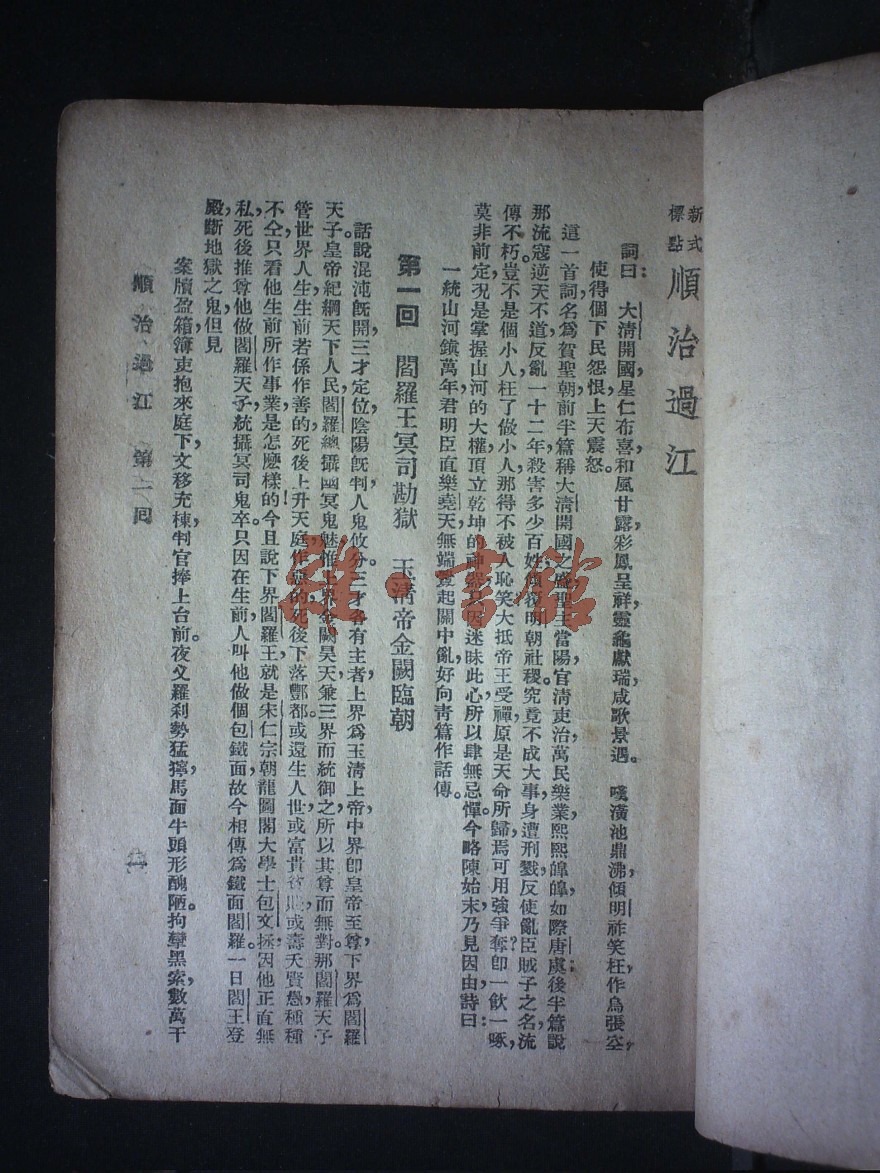 新式標點 順治過江
詞曰：大清開國，星仁布喜，和風甘露，彩鳳呈祥，靈龜獻瑞，咸歌景遇。　嘆潢池鼎沸，傾明祚，笑枉作烏張空，
使得個下民怨恨，上天震怒。
這一首詞，名爲賀聖朝，前半篇稱大清開國之盛，聖主當陽，官清吏治，萬民樂業，熙熙皡皡，如際唐虞；後半篇說
那流寇逆天不道，反亂一十二年，殺害多少百姓，傾覆明朝社稷。究竟不成大事，身遭刑戮，反使亂臣賊子之名，流
傳不朽。豈不是個小人枉了做小人，那得不被人恥笑，大抵帝王受禪，原是天命所歸，焉可用強爭奪？卽一飲一啄，
莫非前定，況是掌握山河的大權，頂立乾坤的神器，只因迷昧此心，所以肆無忌憚。今略陳始末，乃見因由，詩曰：
一統山河鎮萬年，君明臣直樂堯天，無端起關中亂，好向靑篇作話傳。
第一回　閻羅王冥司勘獄　玉清帝金闕臨朝
話說混沌旣開，三才定位，陰陽旣判，人鬼攸分，三才各有主者，上界爲玉清上帝，中界卽皇帝至尊，下界爲閻羅
天子。皇帝紀綱天下人民，閻羅總攝幽冥鬼魅，惟上界金闕昊天，兼三界而統御之，所以其尊而無對。那閻羅天子
管世界人生生前若係作善的，死後上升天庭，作惡的，死後下落酆都，或還生人世，或富貴貧賤，或壽夭賢愚，種種
不仝，只看他生前所作事業是怎麽樣的！今且說下界閻羅王，就是宋仁宗朝龍圖閣大學士包文拯，因他正直無
私，死後推尊他做閻羅天子，統攝冥司鬼卒。只因在生前，人叫他做個包鐵面，故今相傳爲鐵面閻羅。一日閻王登
殿，斷地獄之鬼，但見
案牘盈箱，簿吏抱來庭下，文移充棟，判官捧上台前。夜叉羅刹勢猛獰，馬面牛頭形醜陋。拘攣黑索，數萬千
順治過江　第一回
一
雜·書館